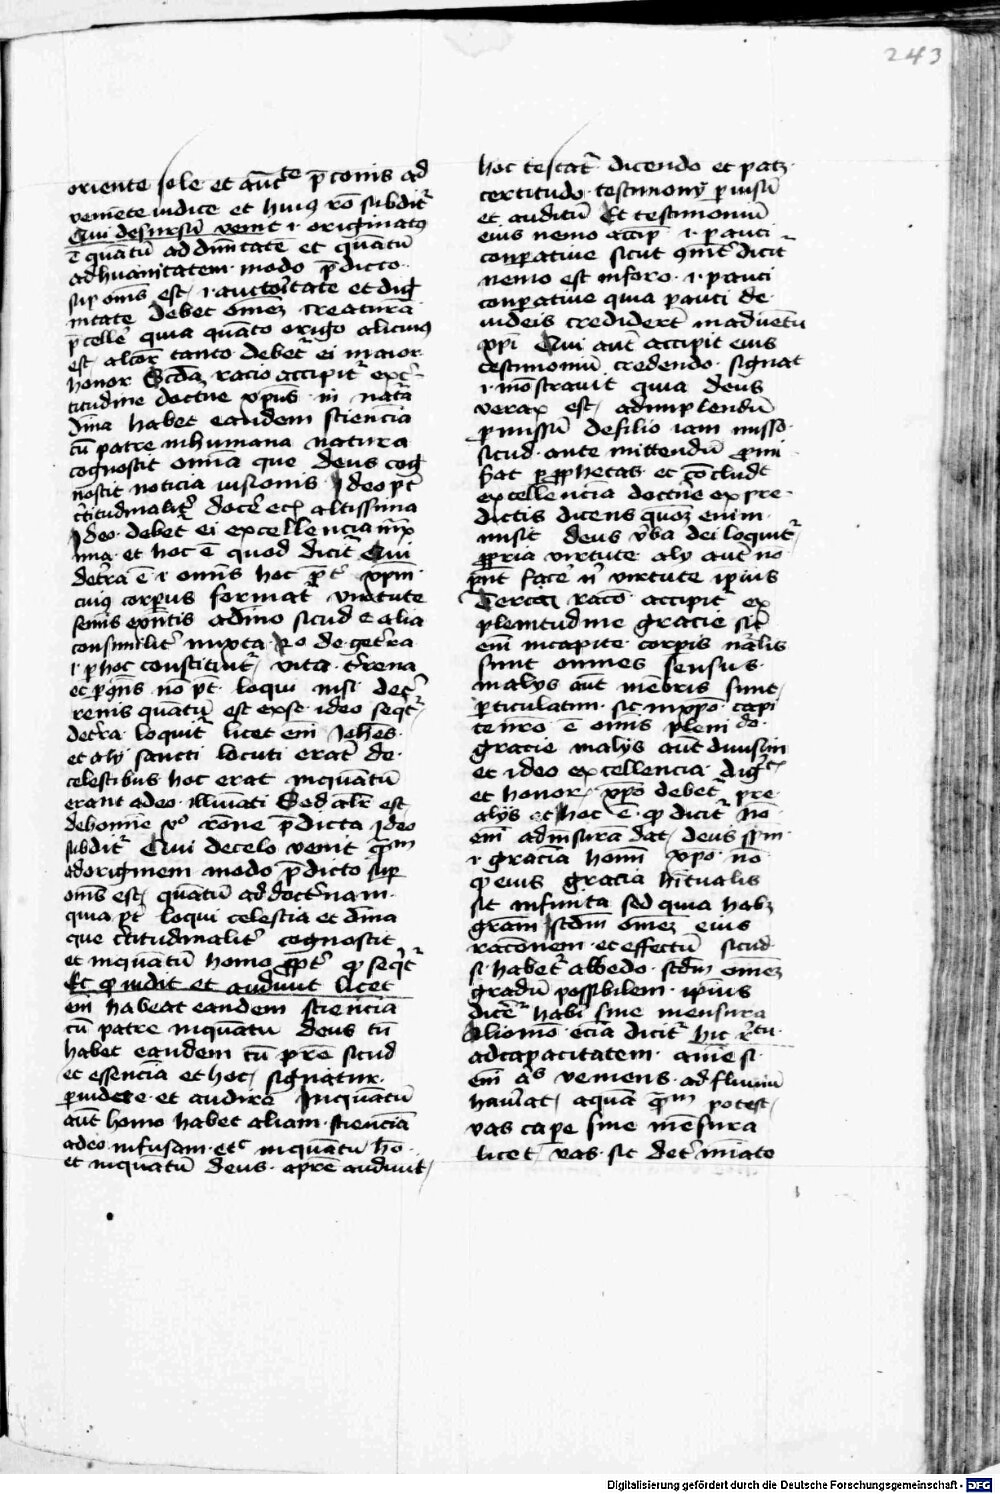 243
oriente sole et aūcte p̄conis ad
veniēte iudice et huiꝯ rō subditᷣ
Qui desursū venit .i. originatꝯ
ē quātū ad diuītatē et quātū
ad huaītatem modo p̄dicto
sup omēs est .i. auctoritate et dig
nitate debet omēꝫ creaturā
p̄cellē quia quāto origo alicuiꝯ
est altior tanto debetᷣ ei maior
honor Scdā racio accipitᷣ ex
titudine doctne xpus in natā
dīna habet eandem scienciā
cū patre in humana natura
cognoscit omīa que deus cog
noscit noticia visionis Ideo pt
ctitudinalitᷣ docē altissima
Ideo debet ei excellencia
ima et hoc ē quod dicitᷣ Qui
detra ē .i. omīs hoc pt xpm
cuiꝯ corpus formatᷣ virtute
semīs sicud e alia
consimilitᷣ iuxta de getra
.i. p hoc constituitᷣ vita trena
et nō pt loqui nisi de
renis quātū est ex se ideo seqtᷣ
detra loquitᷣ licet em̄ Johēs
et alij sancti locuti erāt de
celestibus hoc erat inquātū
erant a deo illuīati Sed alr̄ est
de homīe vo rōne p̄dicta Ideo
subditᷣ Qui de celo venit
ad originem modo p̄dicto sup
omēs est quātū ad doctrinam
quia pt loqui celestia et dīna
que ctitudinalitᷣ cognoscit
et inquātū homo qd seqtᷣ
Et qd uidit et audiuit licet
em̄ habeat eandem scienciā
cū patre inquātū deus tū
habet eandem cū pr̄e sicud
et essencīa et hoc signatur
p uidere et audirā Inquātū
aūt homo habet aliam scienciā
a deo infusam etc inquātū hō
et inquātū deus apr̄e audiuit
hoc testatᷣ dicendo et patꝫ
certitudo testimonij p uisū
et auditū Et testimoniū
eius nemo accip .i. pauci
conparatiue sicut dicitᷣ
nemo est in foro .i. pauci
conparatiue quia pauci de
iudeis crediderūt in aduentu
xpi Qui aut accipit eius
testimoniū credendo signat
.i. mōstrauit quia deus
verax est adimplendū
pmissū de filio iam misso
sicud ante mittendū pmi
sat p pphetas et cōcludt
excellencia doctne ex pre
dictis dicens quoꝫ enim
misit deus vba dei loquitᷣ
ppria virtute alij aut nō
pnt facē virtute ipius
Tercia racō accipitᷣ ex
plenitudine gracie sicᷣ
em̄ in capite corpis nālis
sunt omnes sensus
in alijs aūt mēbris sunt
pticulatim sic in xpo capi
te nrō ē omīs pleni do
gracie in alijs aūt diuisim
et ideo excellencia
et honor xpo debetᷣ pre
alijs et hoc ē qd dicitᷣ Nō
em̄ ad mēsura dat deus spm
.i. gracīa homī xpo nō
qd eius gracia hītualis
sit infinita sed quia habꝫ
grām scdm omēꝫ eius
racōnem et effectū sicud
si habetᷣ albedo scdm omēꝫ
gradū possibilem ipius
dicētᷣ habī sine mensura
Alio mō ecīa dicitᷣ
ad capacitatem anīe si
em̄ veniens ad fluuiū
hauriat aquā potest
vas cape sine mēsura
licet vas sit detmīato
Digitalisierung gefördert durch die Deutsche Forschungsgemeinschaft - DFG